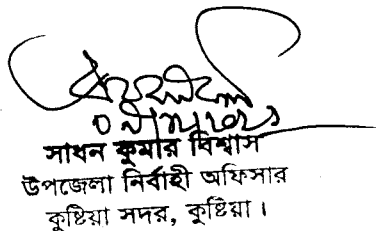 সাধন কুমার বিশ্বাস
উপজেলা নির্বাহী অফিসার
কুষ্টিয়া সদর, কুষ্টিয়া।